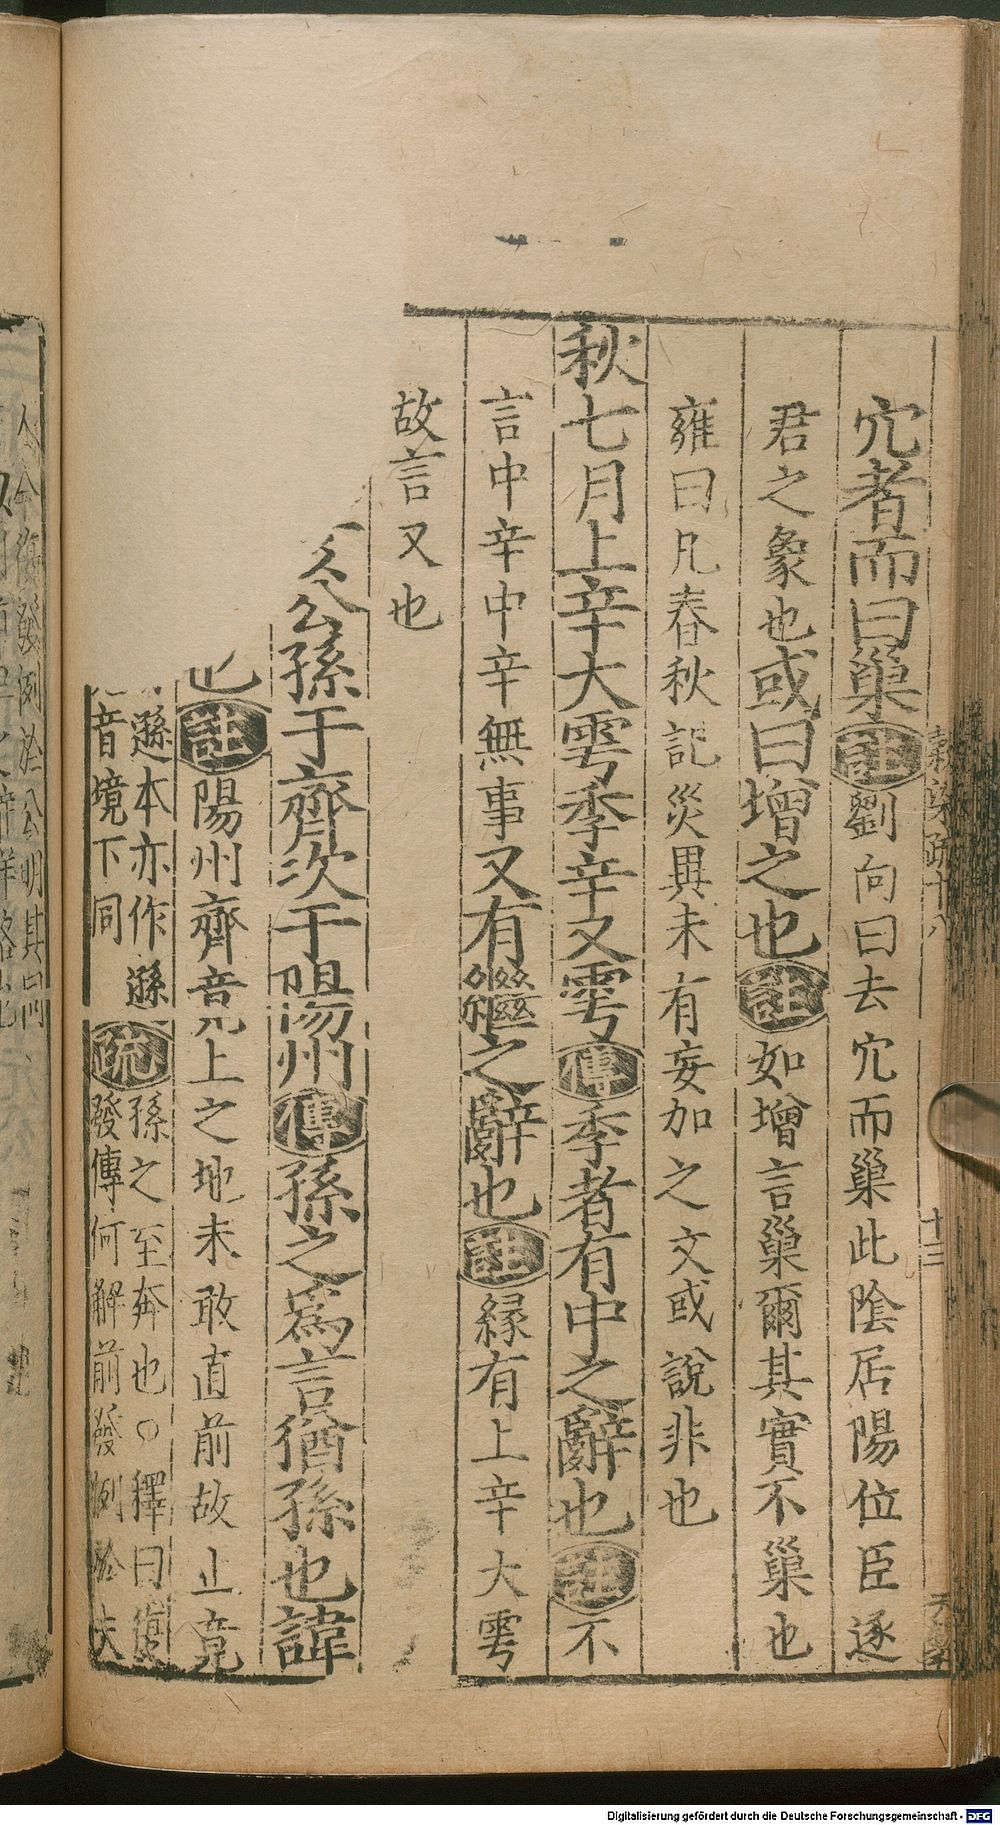 穴者而曰巢註劉向曰去穴而巢此陰居陽位臣逐
君之象也或曰增之也註如增言巢爾其實不巢也
雍曰凡春秋記災異未有妄加之文或說非也
秋七月上辛大雩季辛又雩傳季者有中之辭也註不
言中辛中辛無事又有繼之辭也註緣有上辛大雩
故言又也
公孫于齊次于陽州傳孫之爲言猶孫也諱
也註陽州齊竟上之地未敢直前故止竟
遜本亦作遜
音境下同
疏孫之至奔也○釋曰復
發傳何解前發例於夫
十八
十三
Digitalisierung gefördert durch die Deutsche Forschungsgemeinschaft - DFG